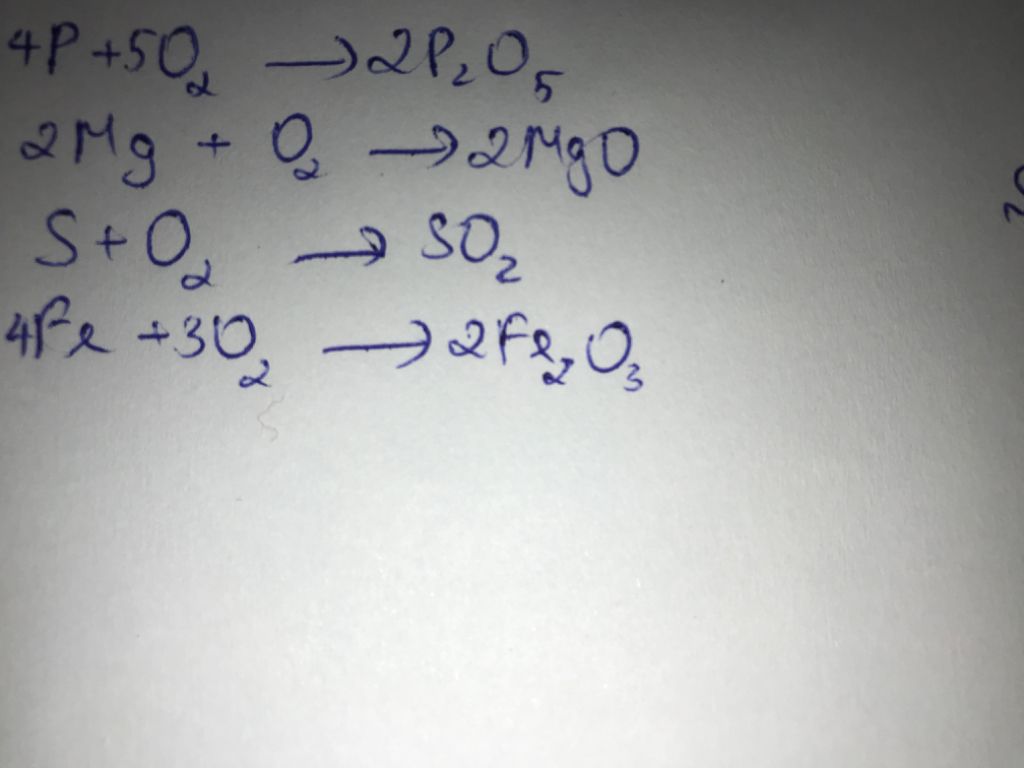 4P + 5O₂ → 2P₂O₅
2Mg + O₂ → 2MgO
S + O₂ → SO₂
4Fe + 3O₂ → 2Fe₂O₃